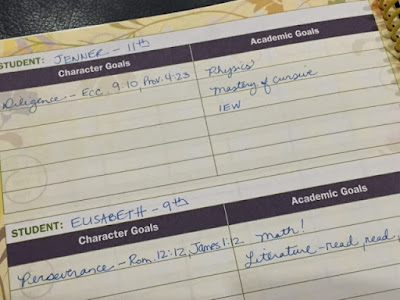 STUDENT: JENNER - 11th
Character Goals Academic Goals
Diligence - Ecc. 9:10, Prov. 4:23 Physics
Mastery of cursive
IEW
STUDENT: ELISABETH - 9th
Character Goals Academic Goals
Perseverance - Rom. 12:12, James 1:2 Math!
Literature - read, read,